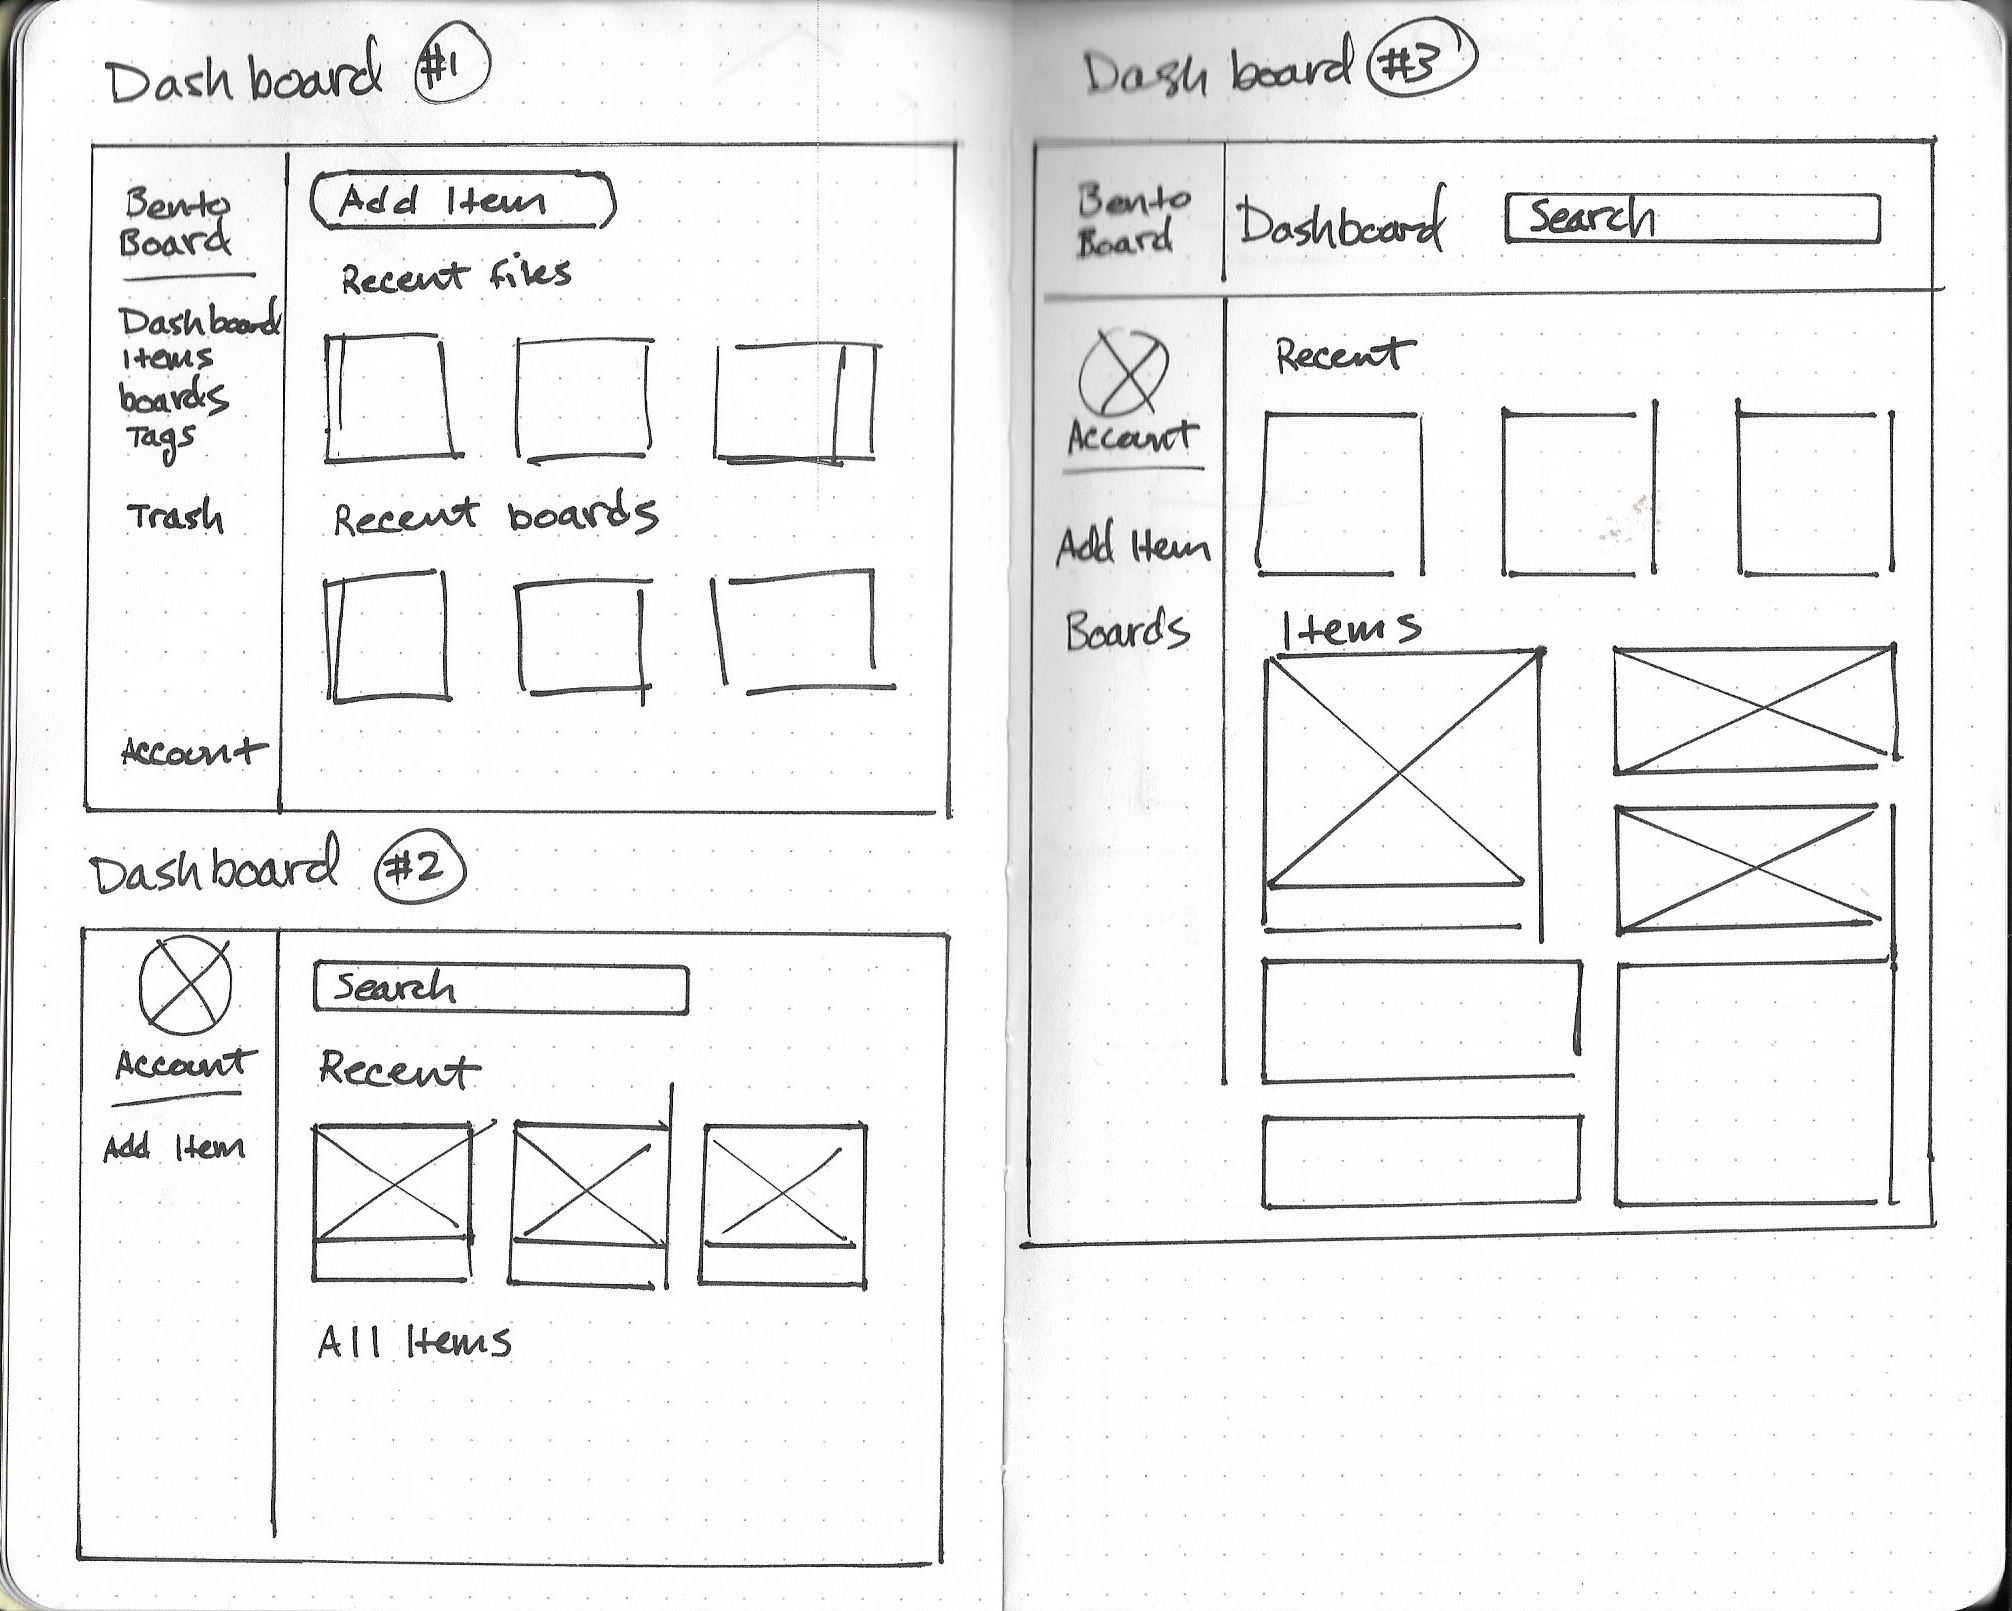 Dashboard #1
Bento
Board
Dashboard
Items
boards
Tags
Trash
Account
Add Item
Recent files
Recent boards
Dashboard #2
Account
Add Item
Search
Recent
All Items
Dashboard #3
Bento
Board
Dashboard
Search
Account
Add Item
Boards
Recent
Items